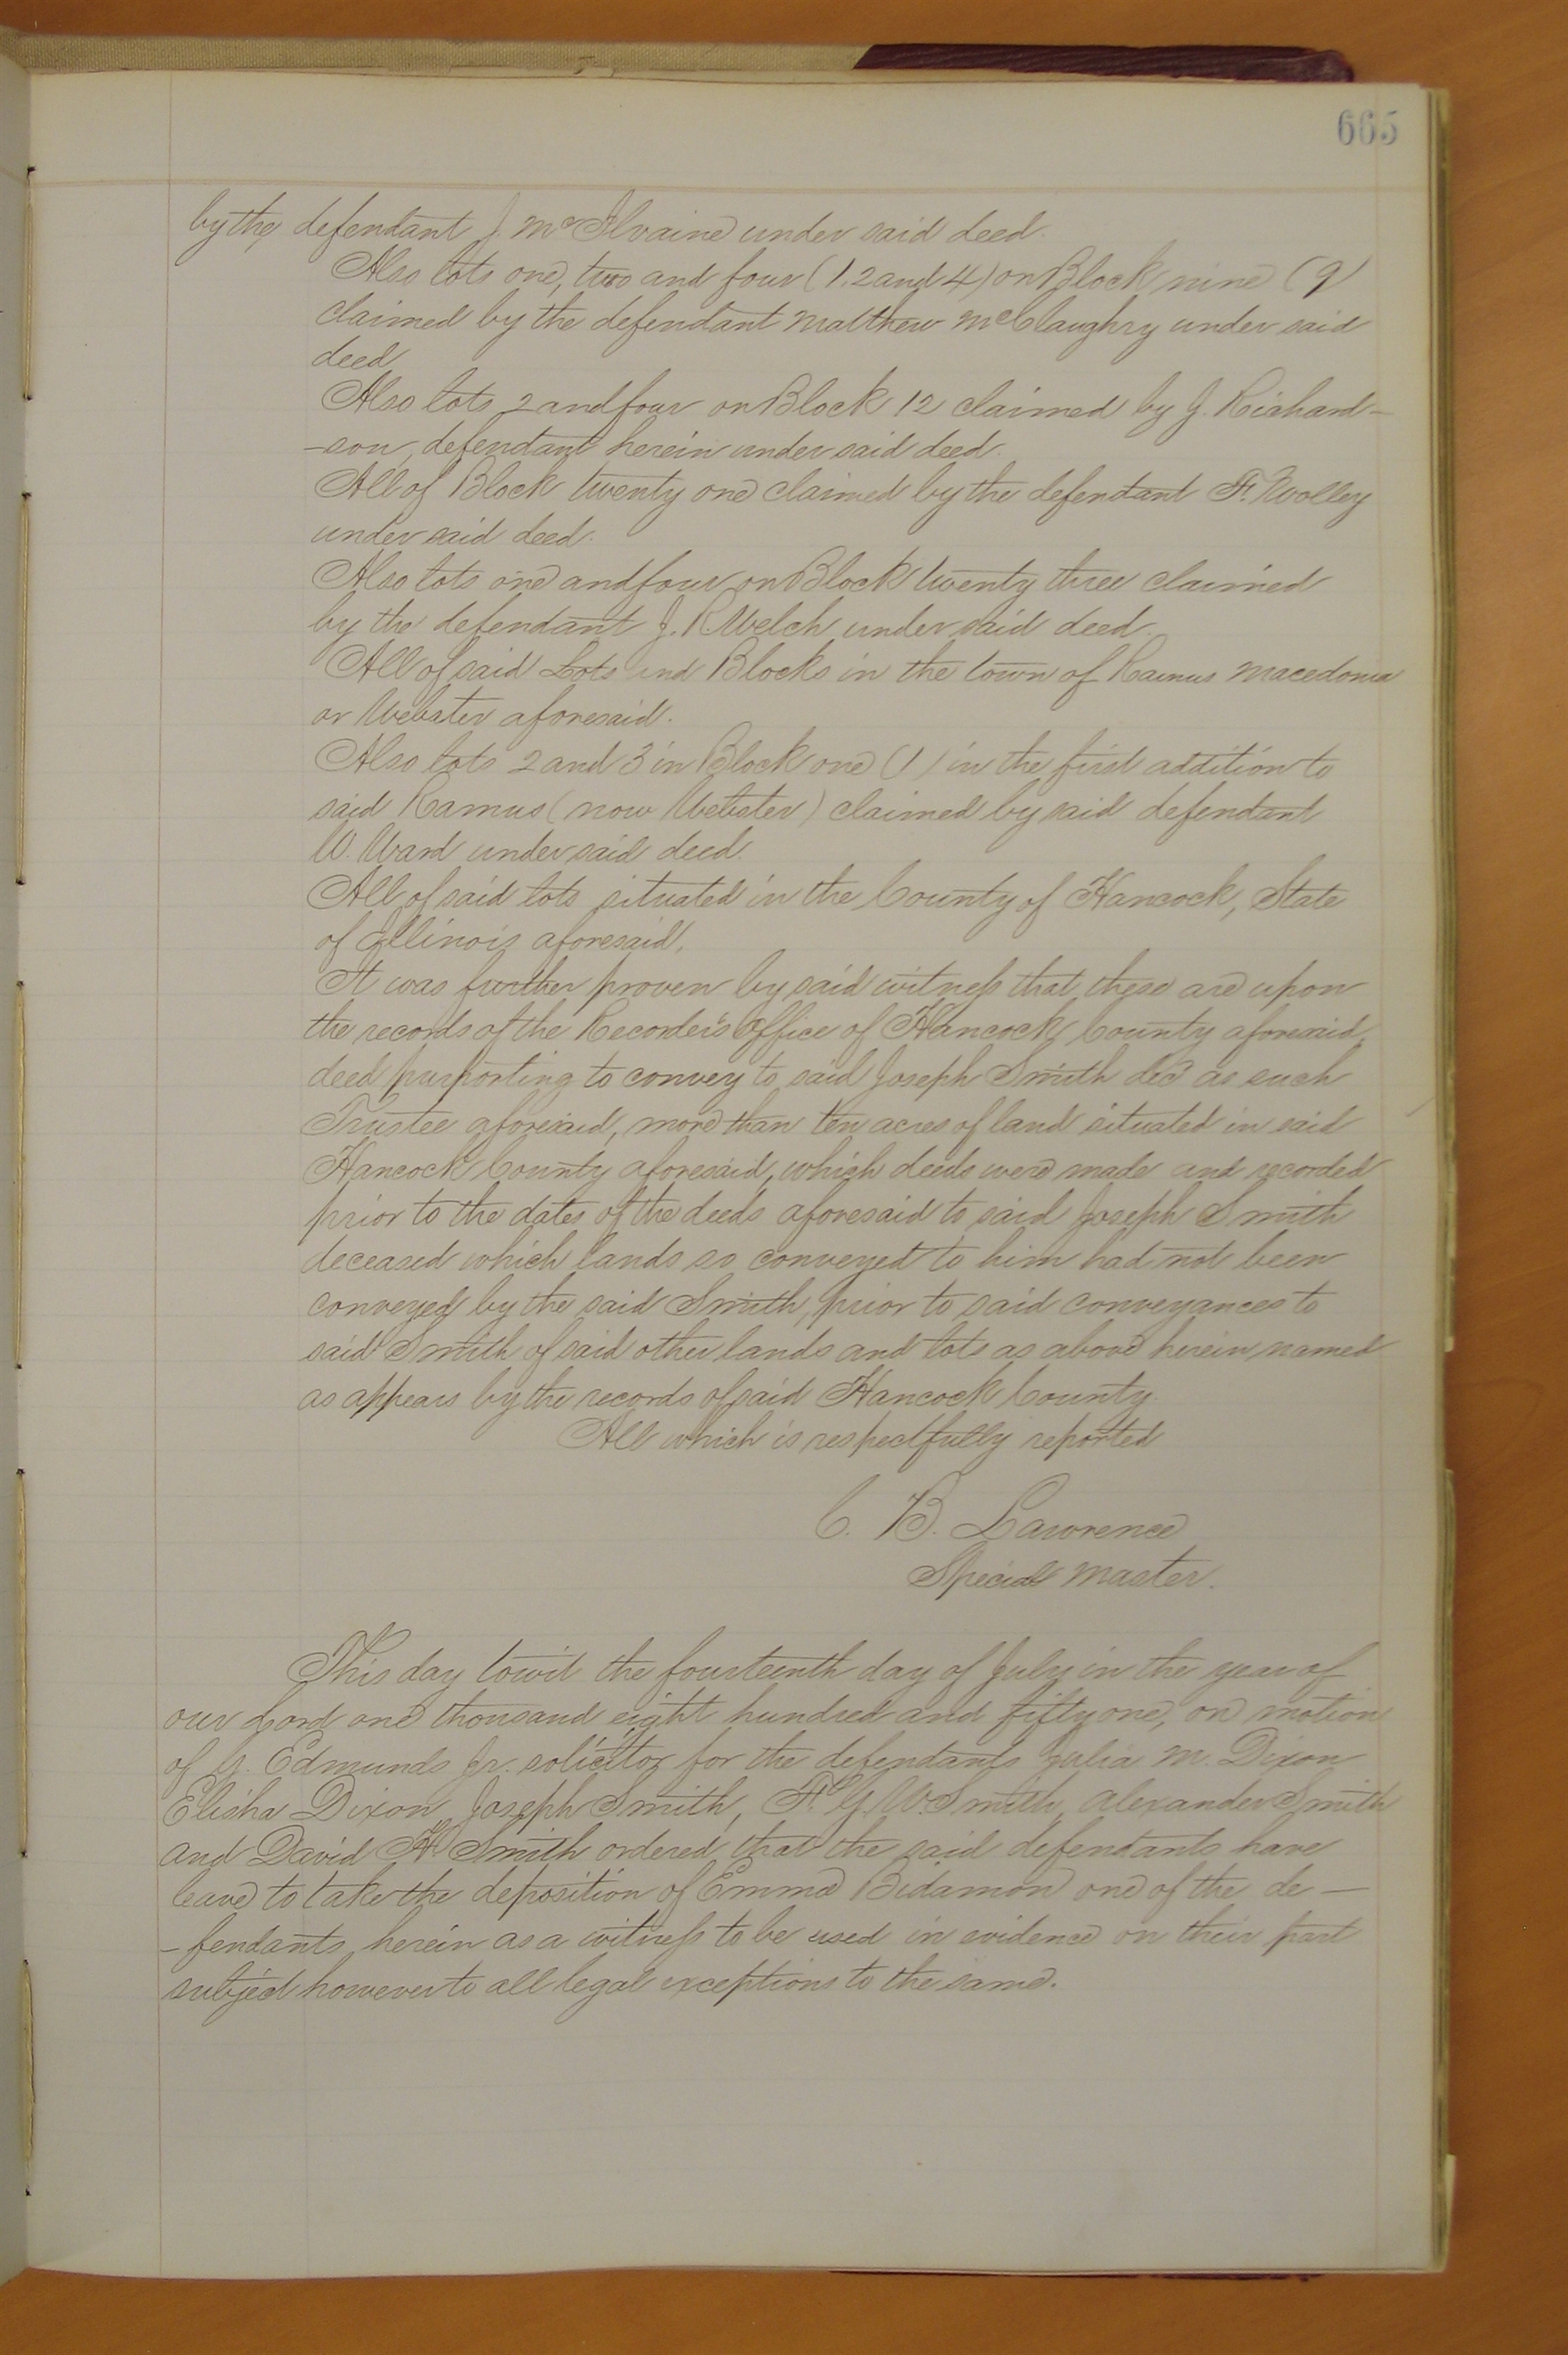 665
by the defendant J. McIlvaine under said deed.
Also lots one, two and four (1.2 and 4) on Block nine (9)
claimed by the defendant Matthew McClaughry under said
deed
Also lots 2 and four on Block 12 claimed by J. Richard-
-son, defendant herein under said deed.
All of Block twenty one claimed by the defendant F. Wolley
under said deed.
Also lots one and four on Block twenty three claimed
by the defendant J. R Welch under said deed.
All of said Lots and Blocks in the town of Ramus Macedonia
or Webster aforesaid.
Also lots 2 and 3 in Block one (1) in the first addition to
said Ramus (now Webster) claimed by said defendant
W. Ward under said deed.
All of said lots situated in the County of Hancock, State
of Illinois aforesaid.
It was further proven by said witness that these are upon
the records of the Recorder's Office of Hancock County aforesaid,
deed purporting to convey to said Joseph Smith dec'd as such
Trustee aforesaid, more than ten acres of land situated in said
Hancock County aforesaid, which deeds were made and recorded
prior to the dates of the deeds aforesaid to said Joseph Smith
deceased which lands so conveyed to him had not been
conveyed by the said Smith, prior to said conveyances to
said Smith of said other lands and lots as above herein named
as appears by the records of said Hancock County.
All which is respectfully reported
C. B. Lawrence
Special Master.
This day towit the fourteenth day of July in the year of
our Lord one thousand eight hundred and fifty one, on motion
of G. Edmunds Jr. solicitor for the defendants Julia M. Dixon
Elisha Dixon, Joseph Smith, F. G. W. Smith, Alexander Smith
and David H Smith ordered that the said defendants have
leave to take the deposition of Emma Bidamon one of the de-
-fendants herein as a witness to be used in evidence on their part
subject however to all legal exceptions to the same.